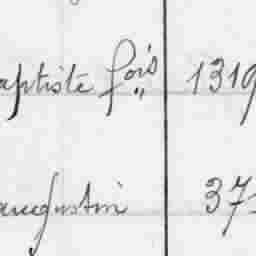 aptiste fois 1319
augustin 37